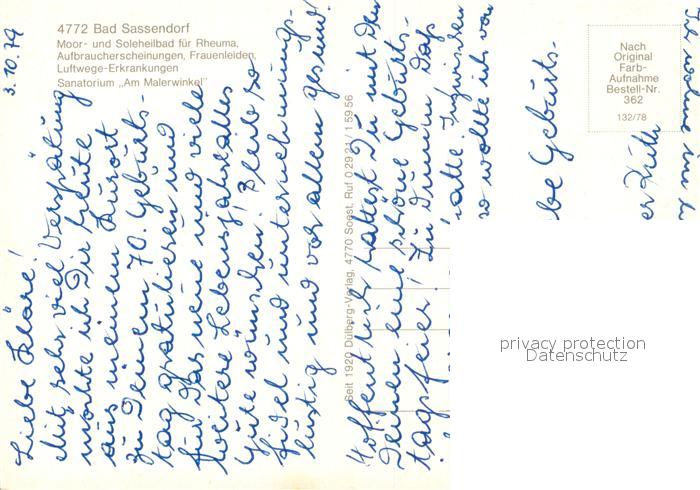 3.10.79
4772 Bad Sassendorf
Moor- und Soleheilbad für Rheuma,
Aufbraucherscheinungen, Frauenleiden,
Luftwege-Erkrankungen
Sanatorium „Am Malerwinkel"
Liebe Kläre!
Mit sehr viel Verspätung
möchte ich Dir heute
aus meinem Kurort
zu Deinem 70. Geburts-
tag gratulieren und
für das neue und viele
weitere Lebensjahre alles
Gute wünschen! Bleib so
fidel und unternehmungs-
lustig und vor allem gesund!
Seit 1920 Dülberg-Verlag, 4770 Soest, Ruf 0 29 21 / 1 59 56
Hoffentlich hattest Du mit den
Deinen eine schöne Geburts-
tagsfeier! Zu dumm, daß
hatte. Inzwischen
so wollte ich von
be Geburts-
er Ruth
Nach
Original
Farb-
Aufnahme
Bestell-Nr.
362
132/78
privacy protection
Datenschutz